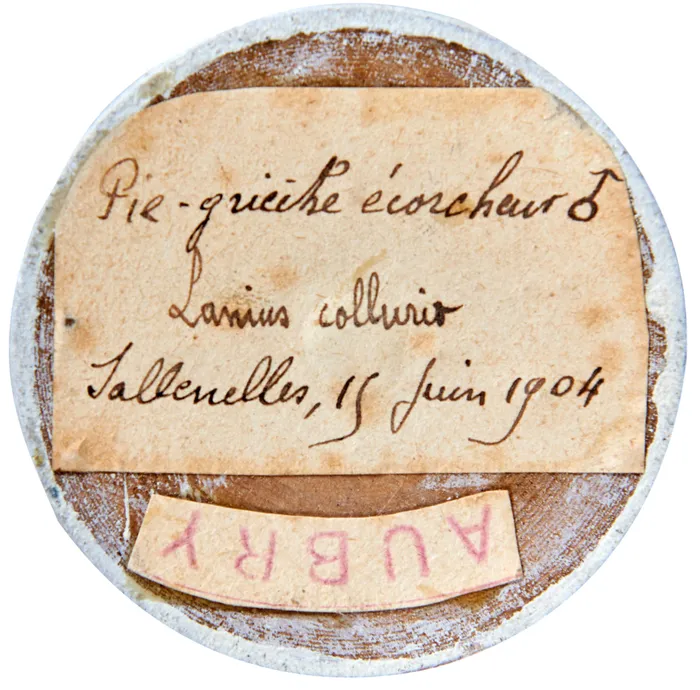 Pie-grièche écorcheur ♂
Lanius collurio
Sallenelles, 15 Juin 1904
AUBRY